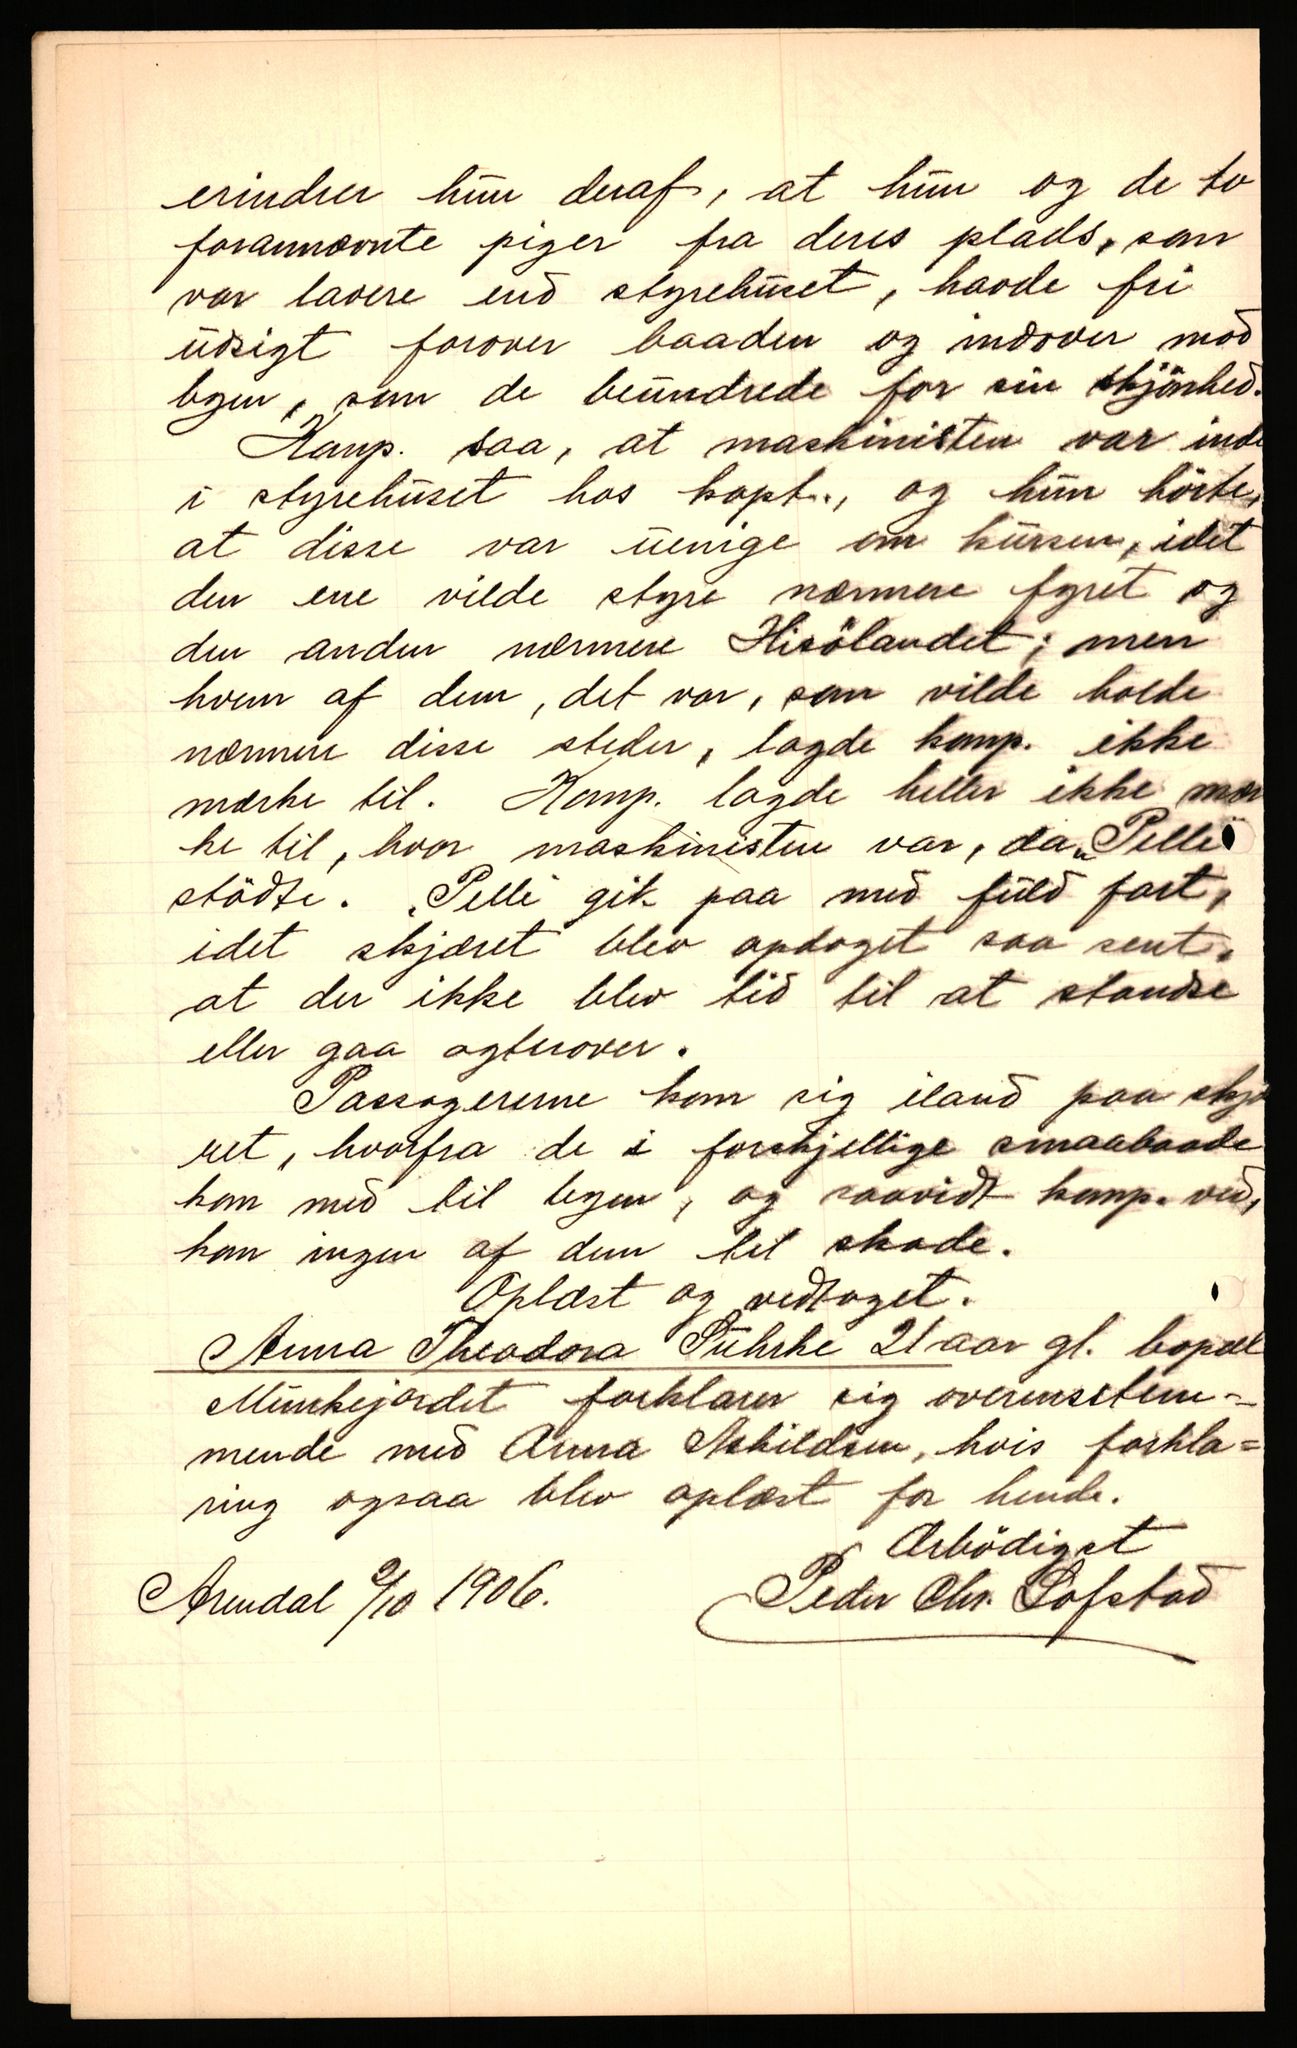 erindrer hun deraf, at hun og de to
forannævnte piger fra deres plads, som
var lavere end styrehuset, havde fri
udsigt forover baaden og indover mod
byen, som de beundrede for sin skjönhed.
Komp. saa, at maskinisten var inde
i styrehuset hos kapt., og hun hörte,
at disse var uenige om kursen, idet
den ene vilde styre nærmere fyret og
den anden nærmere Hisölandet; men
hvem af dem, det var, som vilde holde
nærmere disse steder, lagde komp. ikke
mærke til. Komp. lagde heller ikke mær
ke til, hvor maskinisten var, da „Pelle“
stödte. „Pelle“ gik paa med fuld fart,
idet skjæret blev opdaget saa sent,
at der ikke blev tid til at standse
eller gaa agterover.
Passagererne kom sig iland paa skjæ
ret, hvorfra de i forskjellige smaabaade
kom ned til byen, og saavidt komp. ved,
kom ingen af dem til skade.
Oplæst og vedtaget.
Anna Theodora Suhrke 21 aar gl. bopæl
Munkejordet forklarer sig overensstem=
mende med Anna Askildsen, hvis forkla=
ring ogsaa blev oplæst for hende.
Ærbödigst
Arendal 9/10 1906. Peder Chr. Lofstad